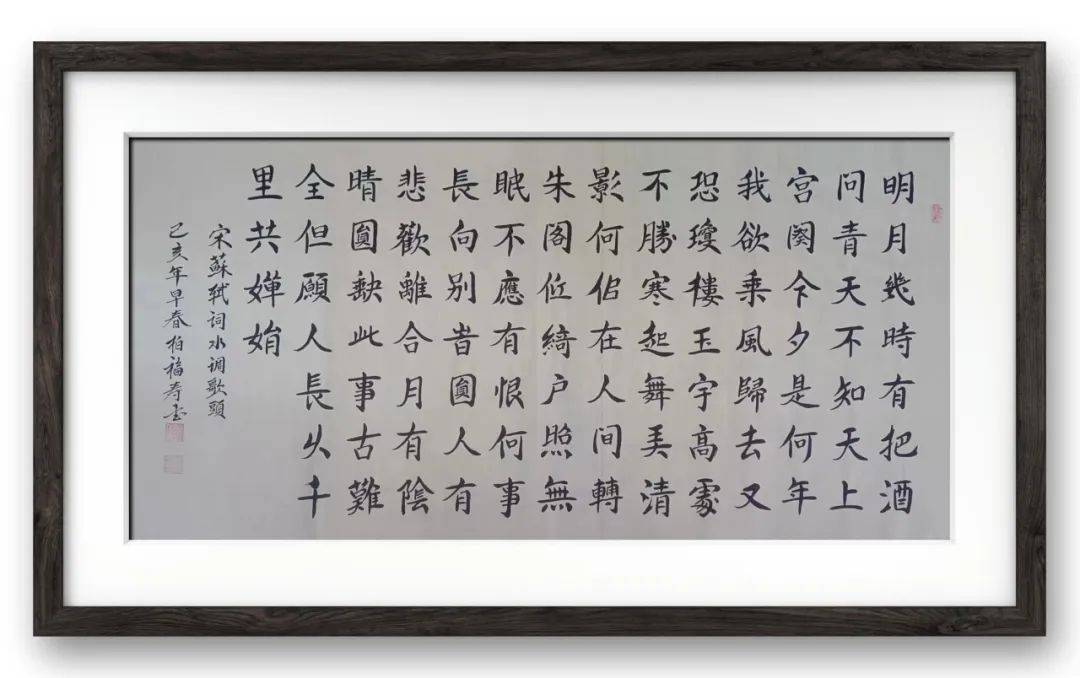 明月幾時有把酒
問青天不知天上
宫闕今夕是何年
我欲乘風歸去又
恐瓊樓玉宇高處
不勝寒起舞弄清
影何佀在人间轉
朱阁低綺户照無
眠不應有恨何事
長向别旹圓人有
悲歡離合月有陰
晴圓缺此事古難
全但願人長久千
里共嬋娟
宋蘇軾词水调歌頭
己亥年早春柏福寿书